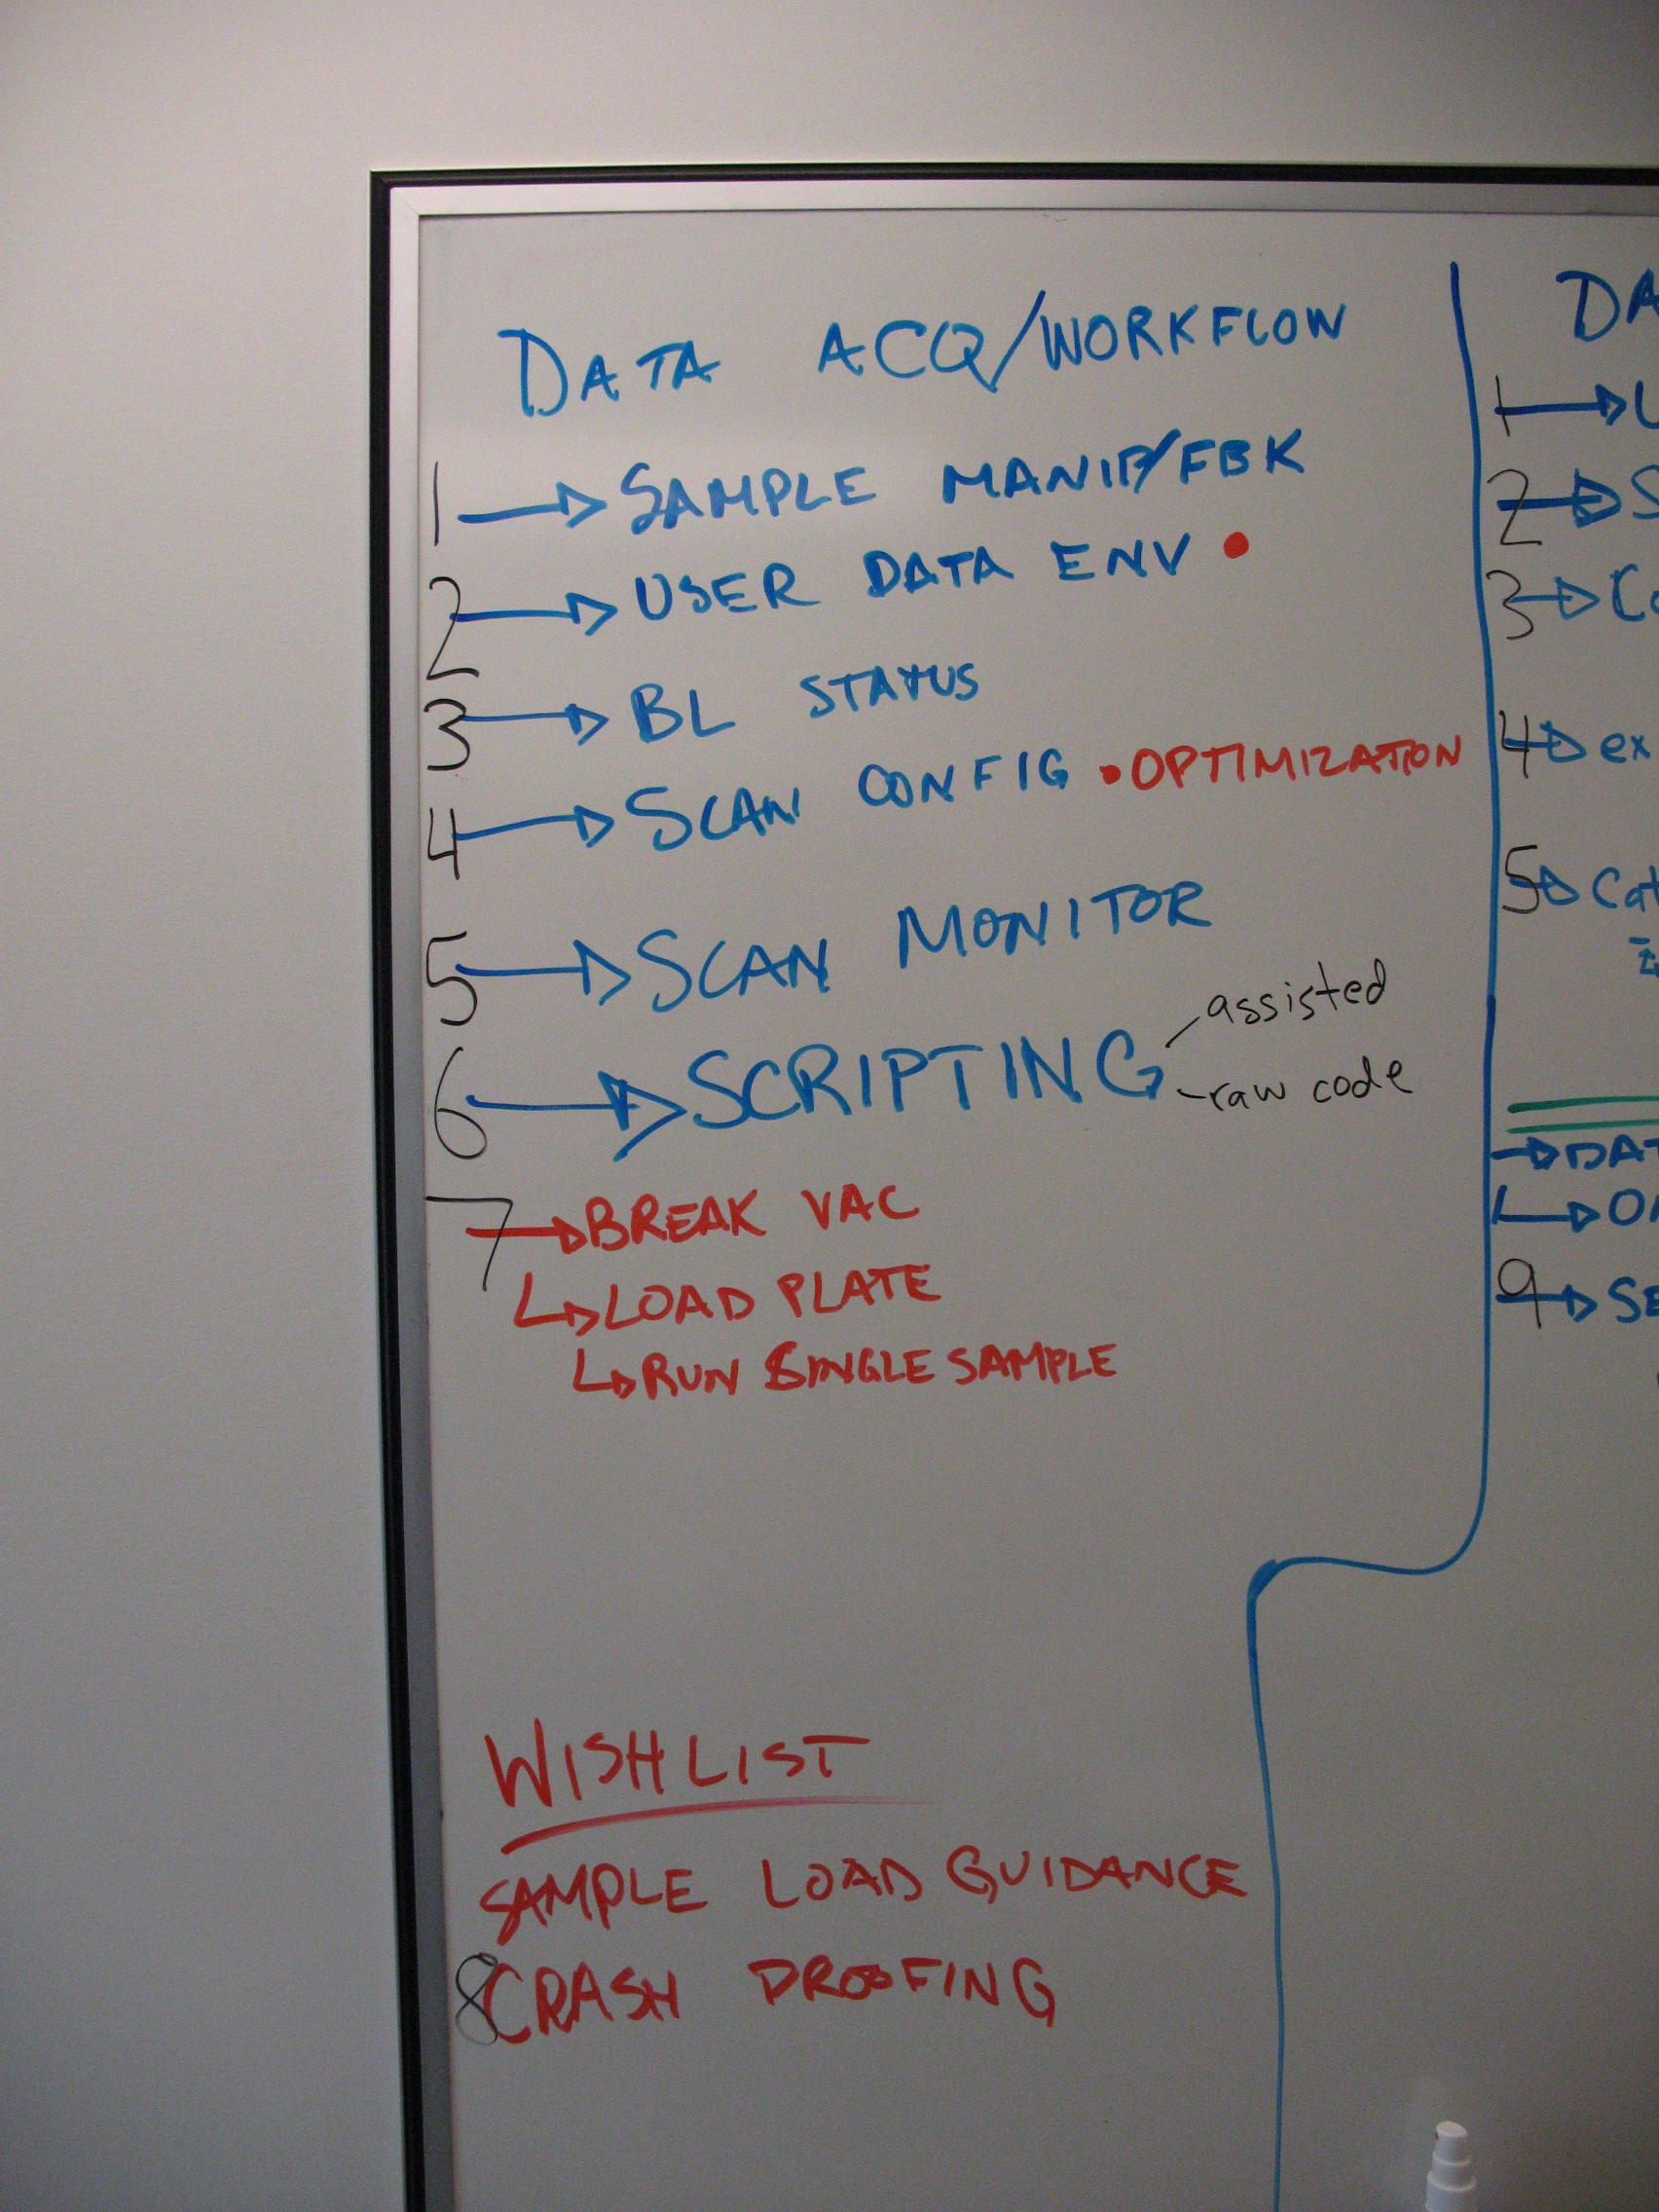 DATA ACQ/WORKFLOW
1 → SAMPLE MANIP/FBK
2 → USER DATA ENV •
3 → BL STATUS
4 → SCAN CONFIG • OPTIMIZATION
5 → SCAN MONITOR
6 → SCRIPTING
assisted
raw code
7 → BREAK VAC
↳ LOAD PLATE
↳ RUN SINGLE SAMPLE
WISHLIST
SAMPLE LOAD GUIDANCE
8 CRASH PROOFING
1 →
2 →
3 →
4 → ex
5 →
9 →